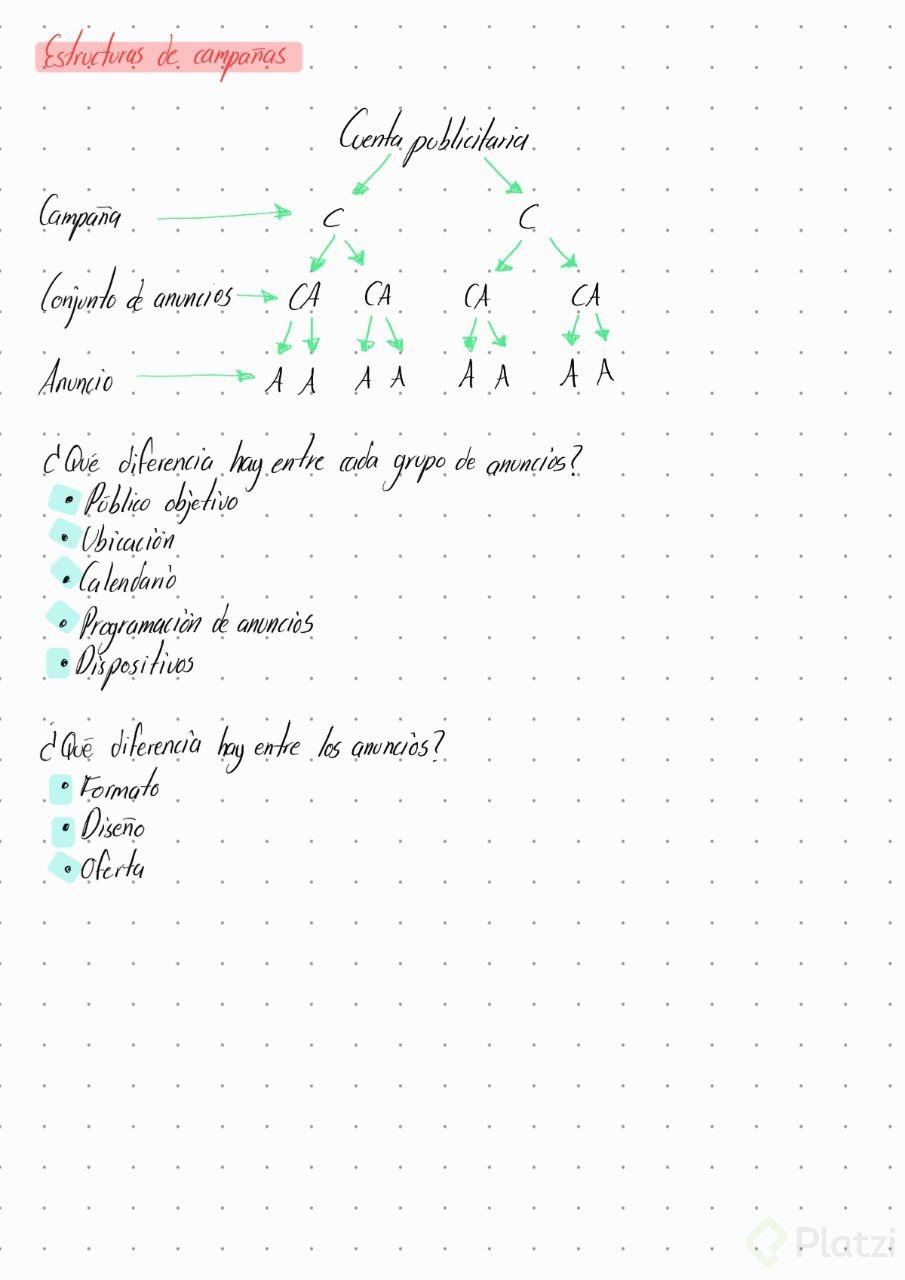 Estructuras de campañas
Cuenta publicitaria
Campaña C C
Conjunto de anuncios CA CA CA CA
Anuncio A A A A A A A A
¿Qué diferencia hay entre cada grupo de anuncios?
• Público objetivo
• Ubicación
• Calendario
• Programación de anuncios
• Dispositivos
¿Qué diferencia hay entre los anuncios?
• Formato
• Diseño
• Oferta
Platzi